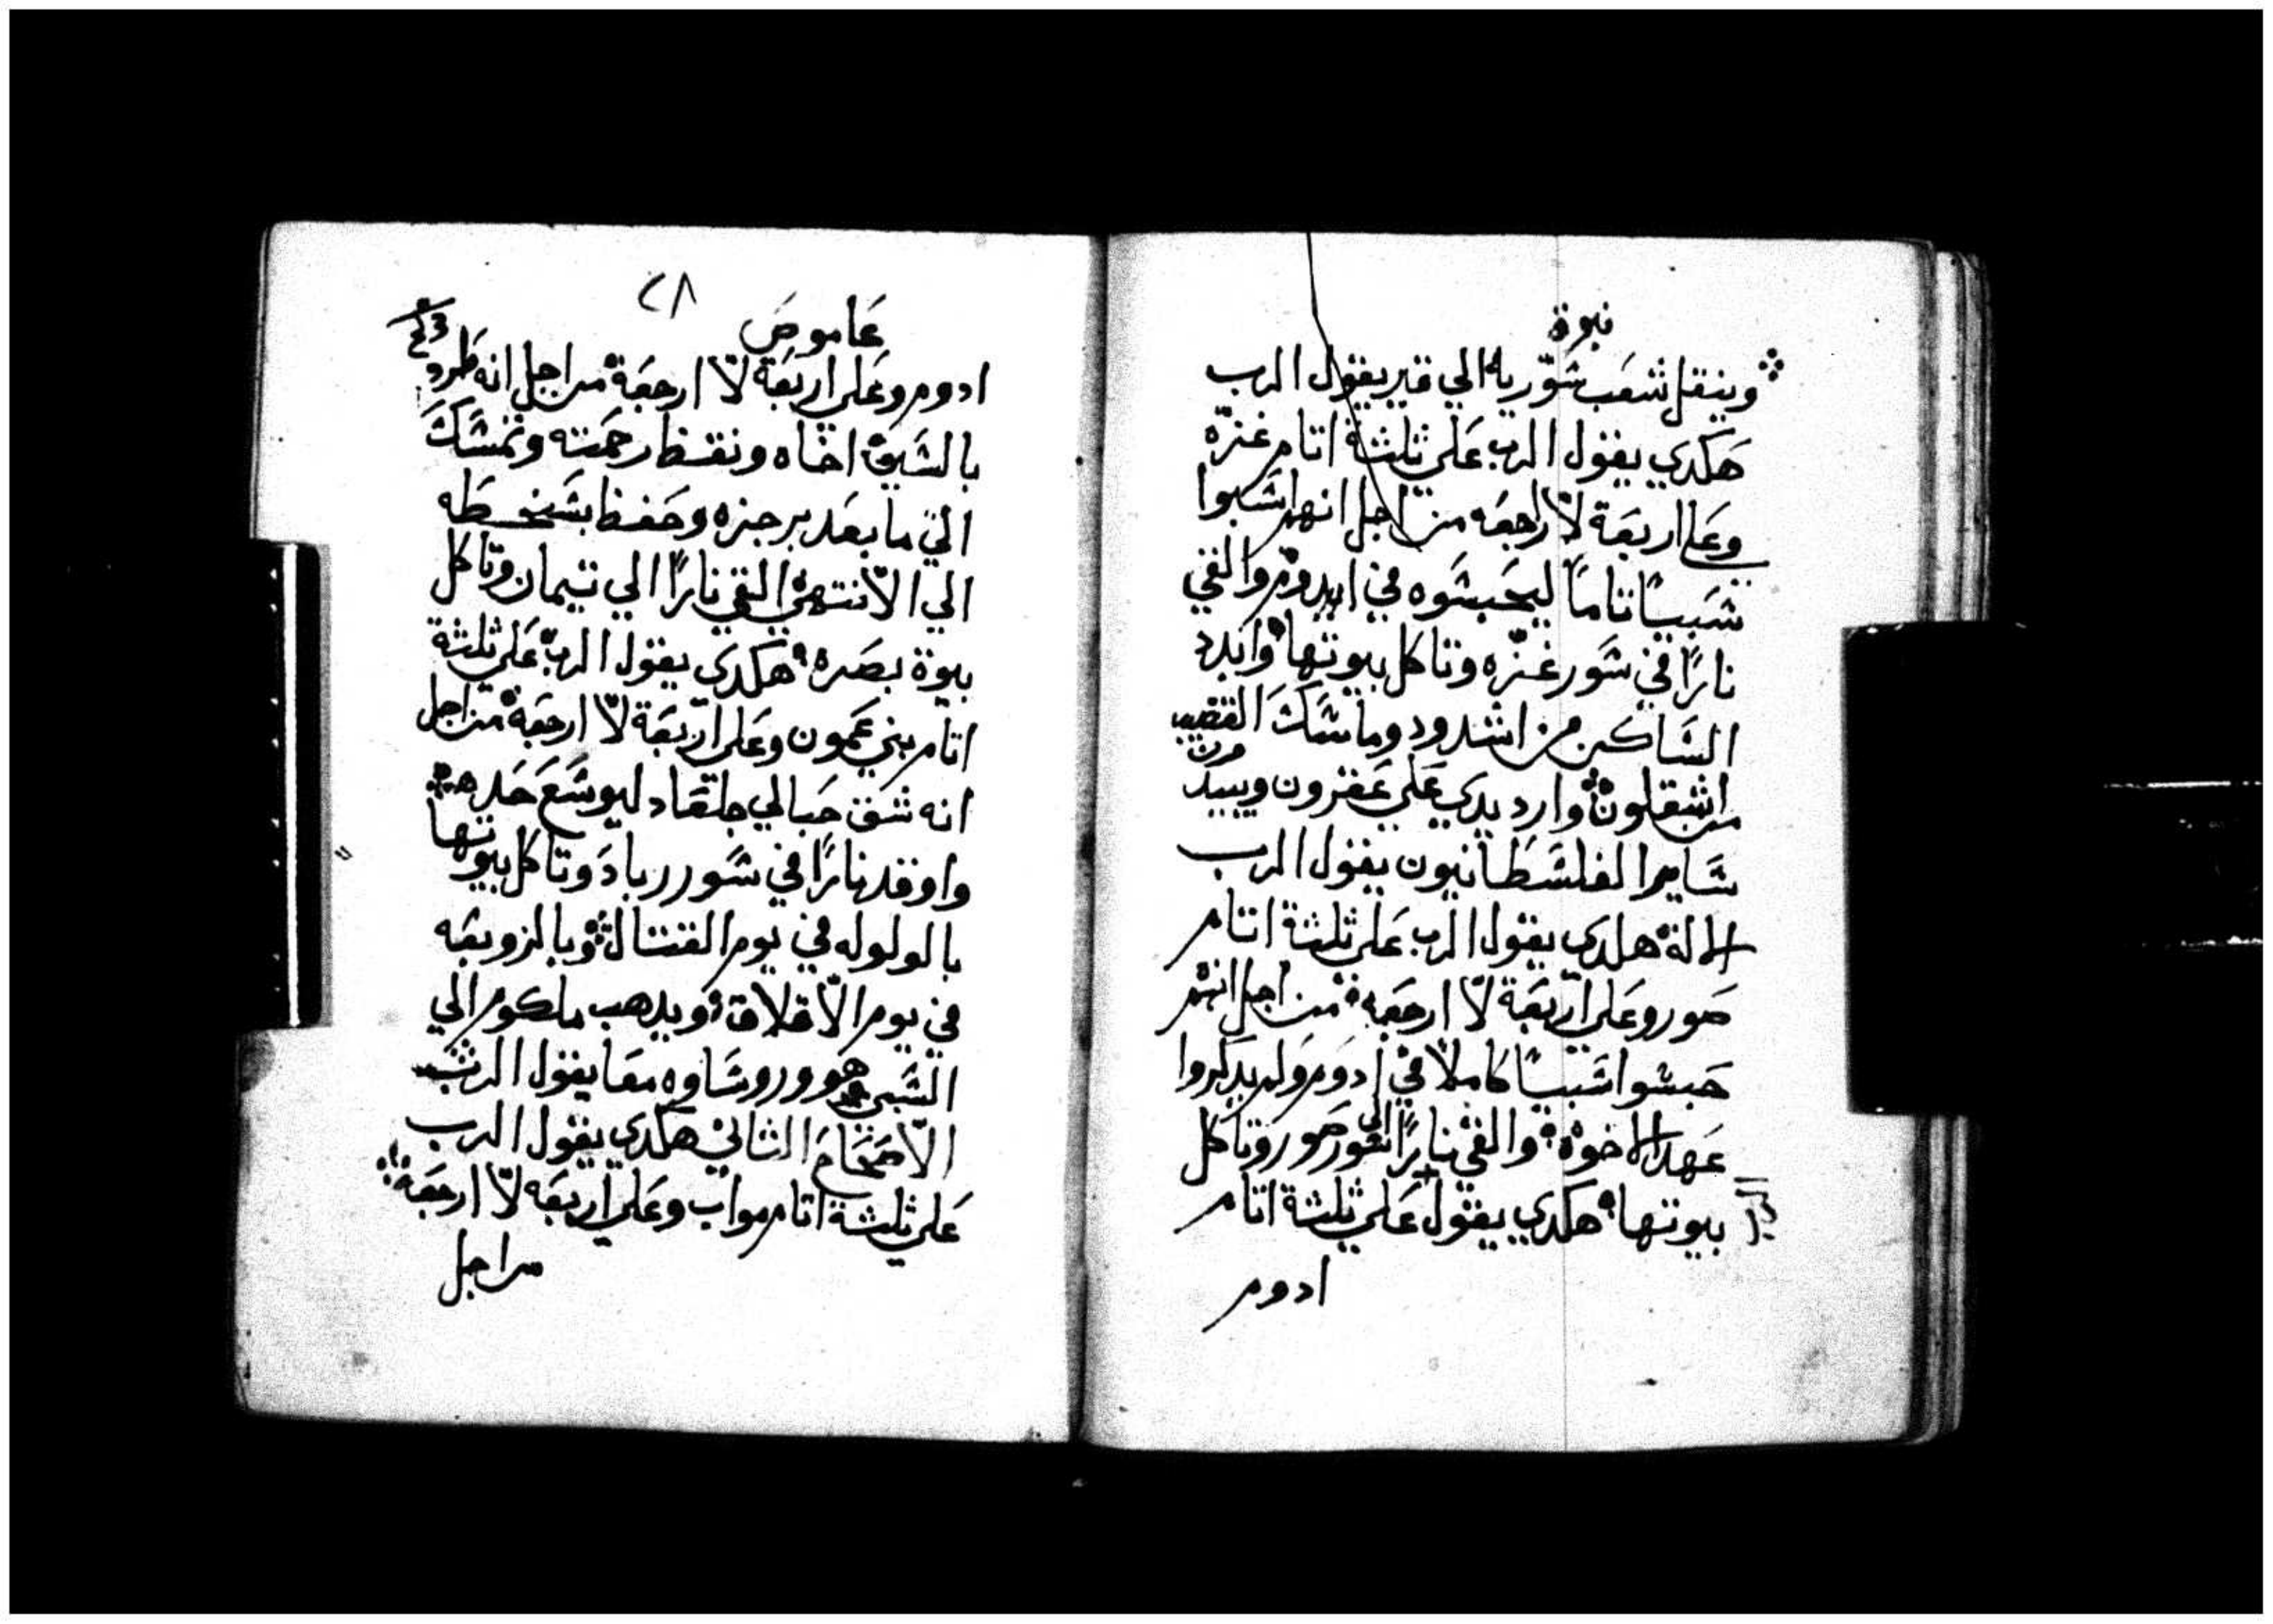 نبوة
وينقل شعب شورية الي قير يقول الرب
هكدي يقول الرب علي ثلثة اتام غزه
وعلي اربعة لا ارجعه من اجل انهم شبوا
شبيا تاما ليحبسوه في ادوم والقي
نارا في سور غزه وتاكل بيوتها وابدد
الساكن من اشدود وماسك القضيب
من اشقلون وارد يدي علي عقرون ويبيد من
ساير الفلسطانيون يقول الرب
الالة هكدي يقول الرب علي ثلثة اتام
صور وعلي اربعة لا ارجعه من اجل انهم
حبسوا شبيا كاملا في ادوم ولم يدكروا
عهد الاخوة والقي نارا الي سور صور وتاكل
بيوتها هكدي يقول علي ثلثة اتام
ادوم
٢٨
عاموص
ادوم وعلي اربعة لا ارجعة من اجل انه طرد
بالسيف اخاه ونقظ رحمته وتمسك
الي ما بعد برجزه وحفظ بسخطه
الي الانتهي القي نارا الي تيمان وتاكل
بيوة بصره هكدي يقول الرب علي ثلثة
اتام بني عمون وعلي اربعة لا ارجعة من اجل
انه شق حبالي جلقاد ليوسع حده
واوقد نارا في سور رباد وتاكل بيوتها
بالولوله في يوم القتال وبالزوبعه
في يوم الاقلاق ويدهب ملكوم الي
السبي هو وروساوه معا يقول الرب
الاصحاح الثاني هكدي يقول الرب
علي ثلثة اتام مواب وعلي اربعه لا ارجعة
من اجل